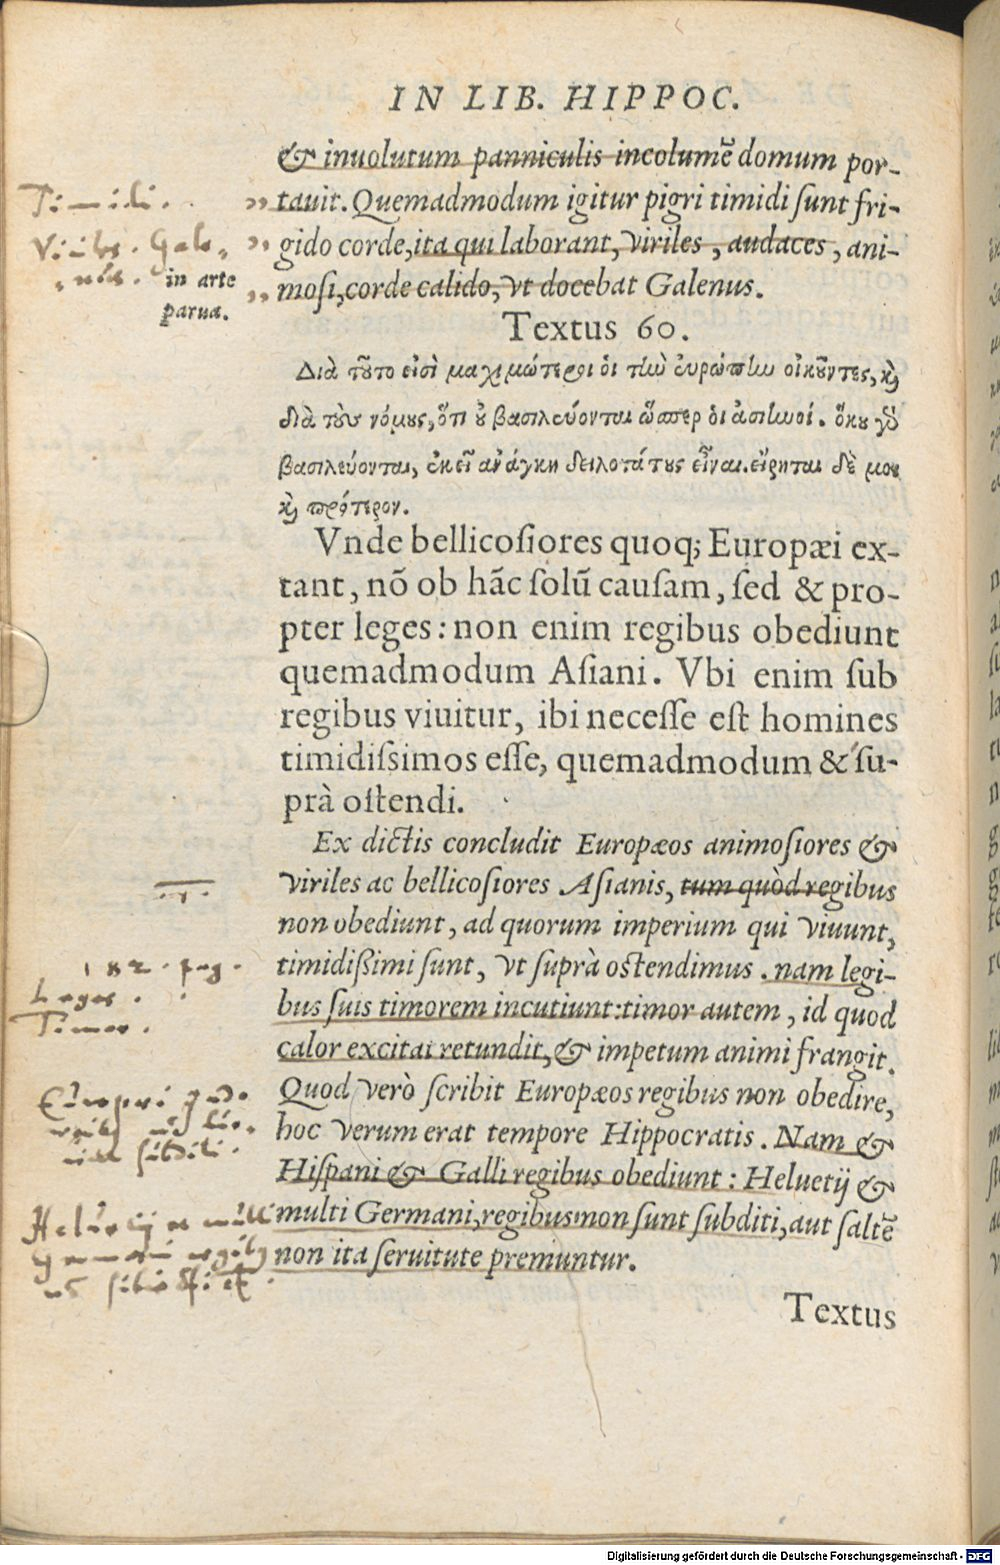 IN LIB. HIPPOC.
& inuolutum panniculis incolumē domum por-
tauit. Quemadmodum igitur pigri timidi ſunt fri-
gido corde, ita qui laborant, viriles, audaces, ani-
moſi, corde calido, vt docebat Galenus.
Timidi.
in arte
parua.
Textus 60.
Διὰ τοῦτο εἰσὶ μαχιμώτεροι οἱ τὴν εὐρώπην οἰκοῦντες, καὶ
διὰ τοὺς νόμους, ὅτι οὐ βασιλεύονται ὥσπερ οἱ ἀσιηνοί. ὅκου γὰρ
βασιλεύονται, ἐκεῖ ἀνάγκη δειλοτάτους εἶναι. εἴρηται δέ μοι
καὶ πρότερον.
Vnde bellicoſiores quoq; Europæi ex-
tant, nō ob hāc ſolū cauſam, ſed & pro-
pter leges: non enim regibus obediunt
quemadmodum Aſiani. Vbi enim ſub
regibus viuitur, ibi neceſſe eſt homines
timidiſsimos eſſe, quemadmodum & ſu-
prà oſtendi.
Ex dictis concludit Europæos animoſiores &
viriles ac bellicoſiores Aſianis, tum quòd regibus
non obediunt, ad quorum imperium qui viuunt,
timidißimi ſunt, vt ſuprà oſtendimus. nam legi-
bus ſuis timorem incutiunt: timor autem, id quod
calor excitat retundit, & impetum animi frangit.
Quod verò ſcribit Europæos regibus non obedire,
hoc verum erat tempore Hippocratis. Nam &
Hiſpani & Galli regibus obediunt: Heluetij &
multi Germani, regibus non ſunt ſubditi, aut ſaltē
non ita ſeruitute premuntur.
182. pag.
Leges.
Timor.
Textus
Digitalisierung gefördert durch die Deutsche Forschungsgemeinschaft - DFG